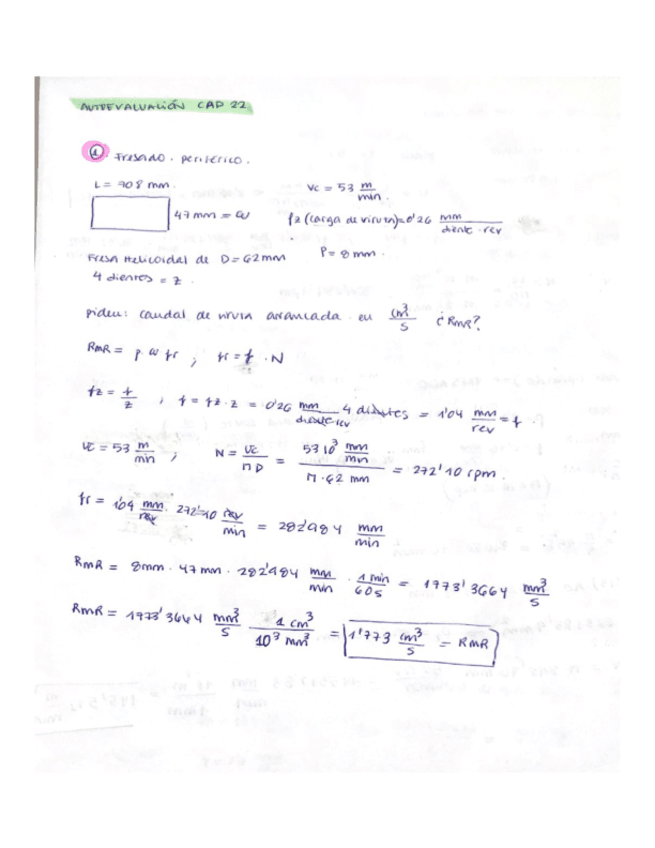 AUTOEVALUACIÓN CAP 22
① Fresado periférico.
L = 708 mm. Vc = 53 m/min.
47 mm = w fz (carga de viruta) = 0'26 mm/diente · rev
Fresa Helicoidal de D = 62 mm P = 8 mm.
4 dientes = z.
Piden: caudal de viruta arrancada en cm³/s ¿RMR?
RMR = p · w · fr ; fr = f · N
fz = f/z ; f = fz · z = 0'26 mm/diente·rev 4 dientes = 1'04 mm/rev = f.
Vc = 53 m/min ; N = Vc/ΠD = 53 10³ mm/min / Π · 62 mm = 272'10 rpm.
fr = 1'04 mm/rev · 272'10 rev/min = 282'984 mm/min
RMR = 8mm · 47 mm · 282'984 mm/min · 1 min/60s = 1773'3664 mm³/s
RMR = 1773'3664 mm³/s 1 cm³/10³ mm³ = 1'773 cm³/s = RMR